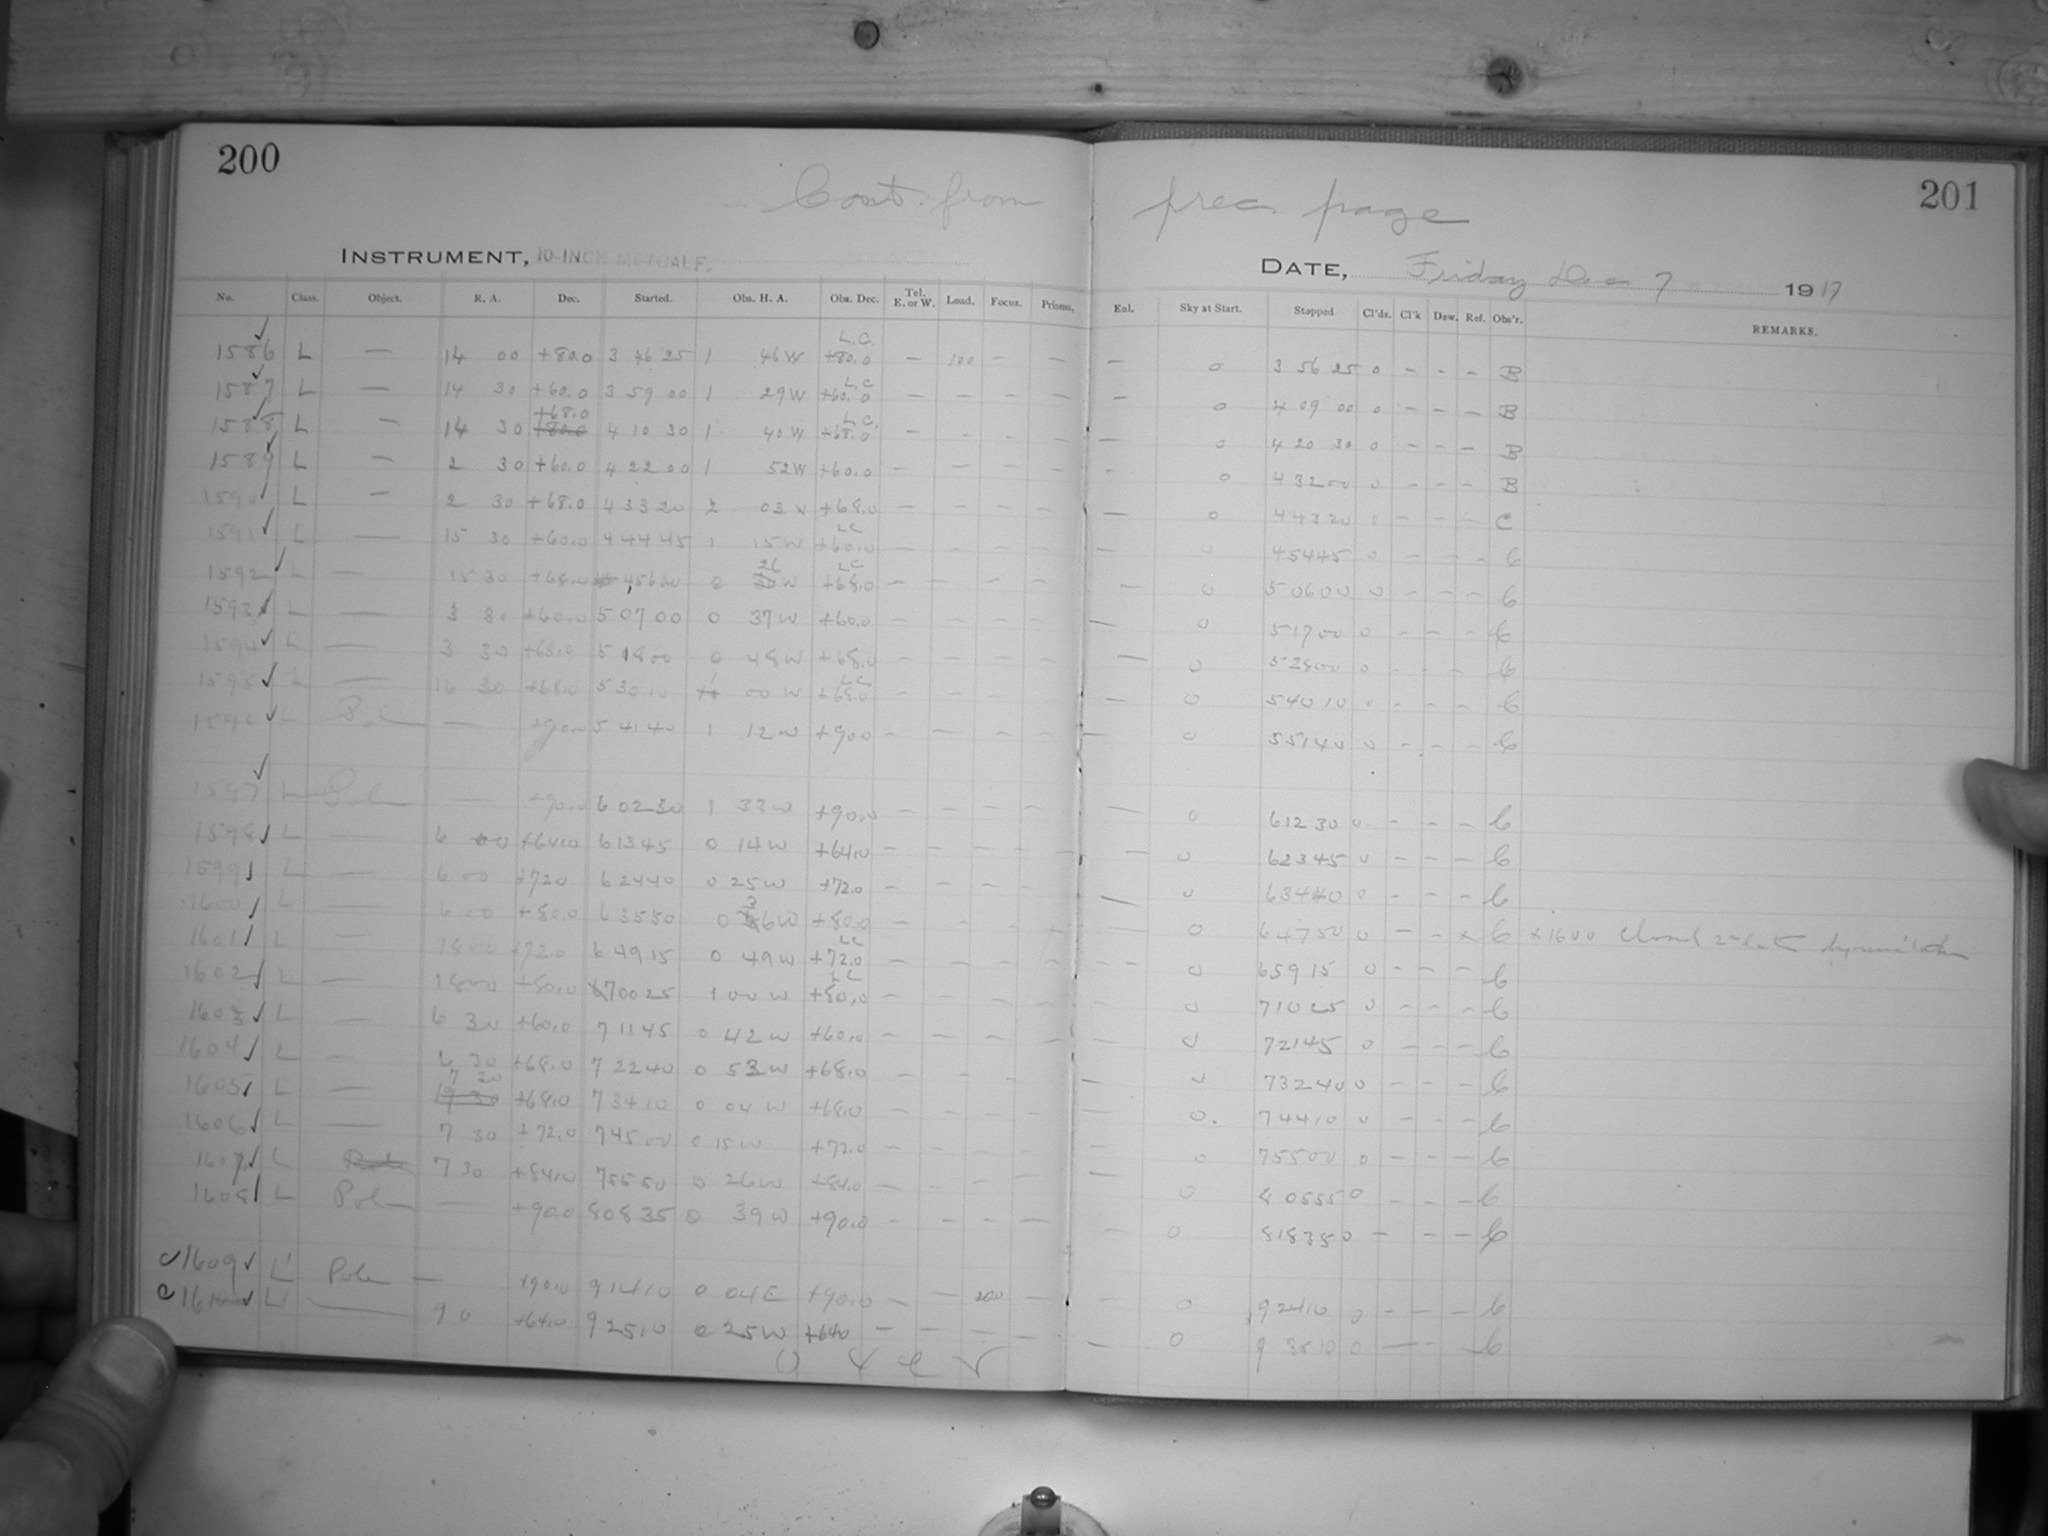 200
201
Cont. from prec. page
INSTRUMENT, 10-INCH METCALF.
DATE, Friday Dec 7 1917
No. Class. Object. R. A. Dec. Started. Obs. H. A. Obs. Dec. Tel. E. or W. Load. Focus. Prisms. Enl. Sky at Start. Stopped Cl'ds. Cl'k Dew. Ref. Obs'r. REMARKS.
L.C.
1586 L — 14 00 +80.0 3 46 25 1 46 W +80.0 — 100 — — — 0 3 56 25 0 - - - B
L.C.
1587 L — 14 30 +60.0 3 59 00 1 29 W +60.0 — — — — — 0 4 09 00 0 - - - B
+68.0 L.C.
1588 L — 14 30 +80.0 4 10 30 1 40 W +68.0 — — — — — 0 4 20 30 0 - - - B
1589 L — 2 30 +60.0 4 22 00 1 52 W +60.0 — — — — - 0 4 32 00 0 - - - B
1590 L — 2 30 +68.0 4 33 20 2 03 W +68.0 — — — — — 0 4 43 20 0 - - - C
LC
1591 L — 15 30 +60.0 4 44 45 1 15 W +60.0 — — — — — 0 4 54 45 0 - - - C
26 LC
1592 L — 15 30 +68.0 4 56 00 0 W +68.0 — — — — — 0 5 06 00 0 - - - C
1593 L — 3 30 +60.0 5 07 00 0 37 W +60.0 — — — — — 0 5 17 00 0 - - - C
1594 L — 3 30 +68.0 5 18 00 0 48 W +68.0 — — — — — 0 5 28 00 0 - - - C
LC
1595 L — 16 30 +68.0 5 30 10 1 00 W +68.0 — — — — 0 5 40 10 0 - - - C
1596 L Pole — +90.0 5 41 40 1 12 W +90.0 — — — — — 0 5 51 40 0 - - - C
1597 L Pole — +90.0 6 02 30 1 33 W +90.0 — — — — — 0 6 12 30 0 - - - C
1598 L — 6 00 +64.0 6 13 45 0 14 W +64.0 — — — — — 0 6 23 45 0 - - - C
1599 L — 6 00 +72.0 6 24 40 0 25 W +72.0 — — — — 0 6 34 40 0 - - - C
1600 L — 6 00 +80.0 6 35 50 0 36 W +80.0 — — — — — 0 6 47 50 0 - - x C x 1600 closed 2 late by
LC
1601 L — 18 00 +72.0 6 49 15 0 49 W +72.0 — — — — — 0 6 59 15 0 - - - C
LC
1602 L — 18 00 +80.0 7 00 25 1 00 W +80.0 — — — — 0 7 10 25 0 - - - C
1603 L — 6 30 +60.0 7 11 45 0 42 W +60.0 — — — — — 0 7 21 45 0 - - - C
1604 L — 6 30 +68.0 7 22 40 0 53 W +68.0 — — — — 0 7 32 40 0 - - - C
7 30
1605 L — 19 30 +68.0 7 34 10 0 04 W +68.0 — — — — — 0 7 44 10 0 - - - C
1606 L — 7 30 +72.0 7 45 00 0 15 W +72.0 — — — — — 0 7 55 00 0 - - - C
1607 L Pole 7 30 +84.0 7 55 50 0 26 W +84.0 — — — — — 0 8 05 55 0 - - - C
1608 L Pole — +90.0 8 08 35 0 39 W +90.0 — — — — — 0 8 18 35 0 - - - C
c 1609 L' Pole — +90.0 9 14 10 0 04 E +90.0 — — 200 — — 0 9 24 10 0 - - - C
c 1610 L' — 9 0 +64.0 9 25 10 0 25 W +64.0 — — — — — 0 9 35 10 0 - - - C
Over